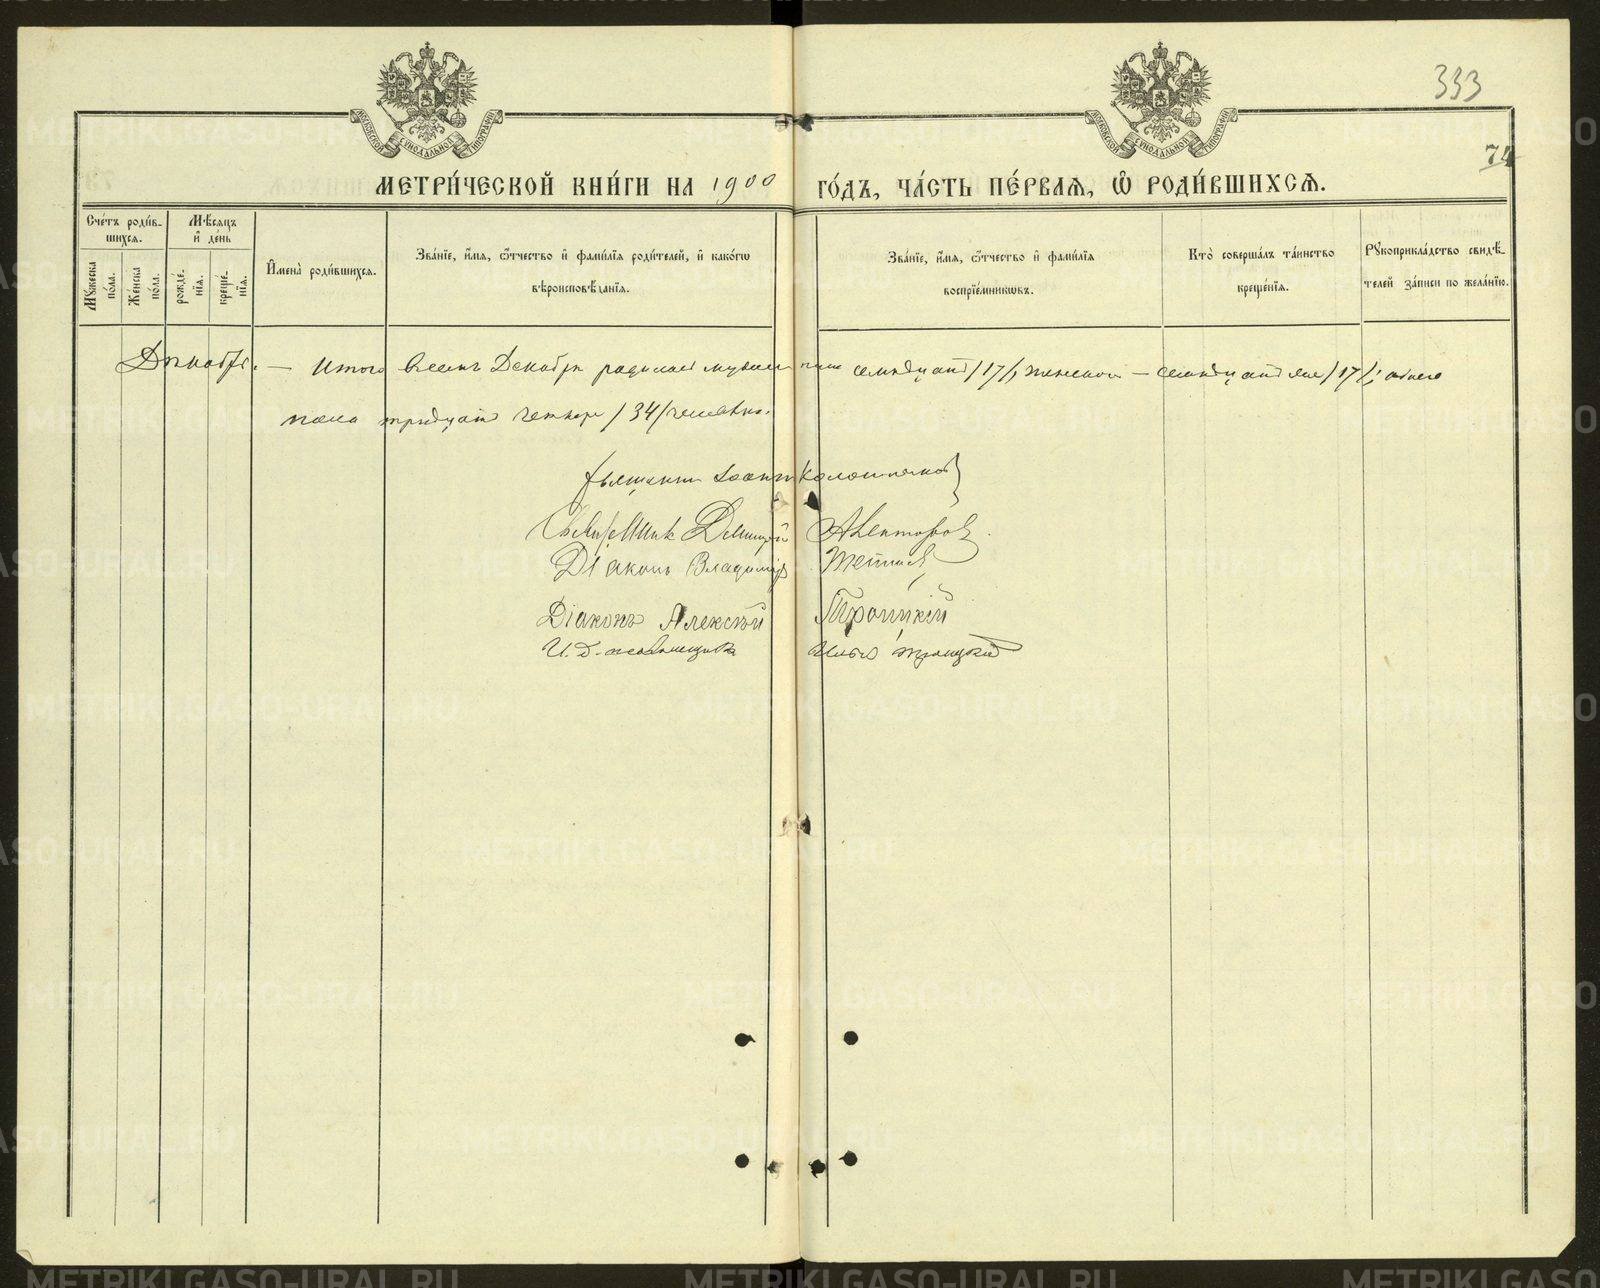 333
74
МОСКОВСКОЙ СѴНОДАЛЬНОЙ ТИПОГРАФІИ
МОСКОВСКОЙ СѴНОДАЛЬНОЙ ТИПОГРАФІИ
МЕТРИ́ЧЕСКОЙ КНИ́ГИ НА 1900 ГО́ДЪ, ЧА́СТЬ ПЕ́РВАѦ, Ѽ РОДИ́ВШИХСѦ.
Сче́тъ роди́в-
шихсѧ.
Мꙋ́жеска
по́ла.
Же́нска
по́ла.
Мѣ́сѧцъ
и҆ де́нь
рожде́-
нїѧ.
креще́-
нїѧ.
И҆мена̀ роди́вшихсѧ.
Зва́нїе, и҆́мѧ, ѻ҆́тчество и҆ фами́лїѧ роди́телей, и҆ како́гѡ
вѣроисповѣ́данїѧ.
Зва́нїе, и҆́мѧ, ѻ҆́тчество и҆ фами́лїѧ
воспрїе́мникѡвъ.
Кто̀ соверша́лъ та́инство
креще́нїѧ.
Рꙋкоприкла́дство свидѣ́-
телей за́писи по жела́нїю.
Декабрь. — Итого въ Декабрѣ родилось мужеска пола семнадцать /17/, женской — семнадцать же /17/; обоего
пола тридцать четыре /34/ человѣка.
Священникъ Іоаннъ
Священникъ Димитрій
Діаконъ Владиміръ
Діаконъ Алексѣй Троицкій
И. д. псаломщика Троицкій
METRIKI.GASO-URAL.RU